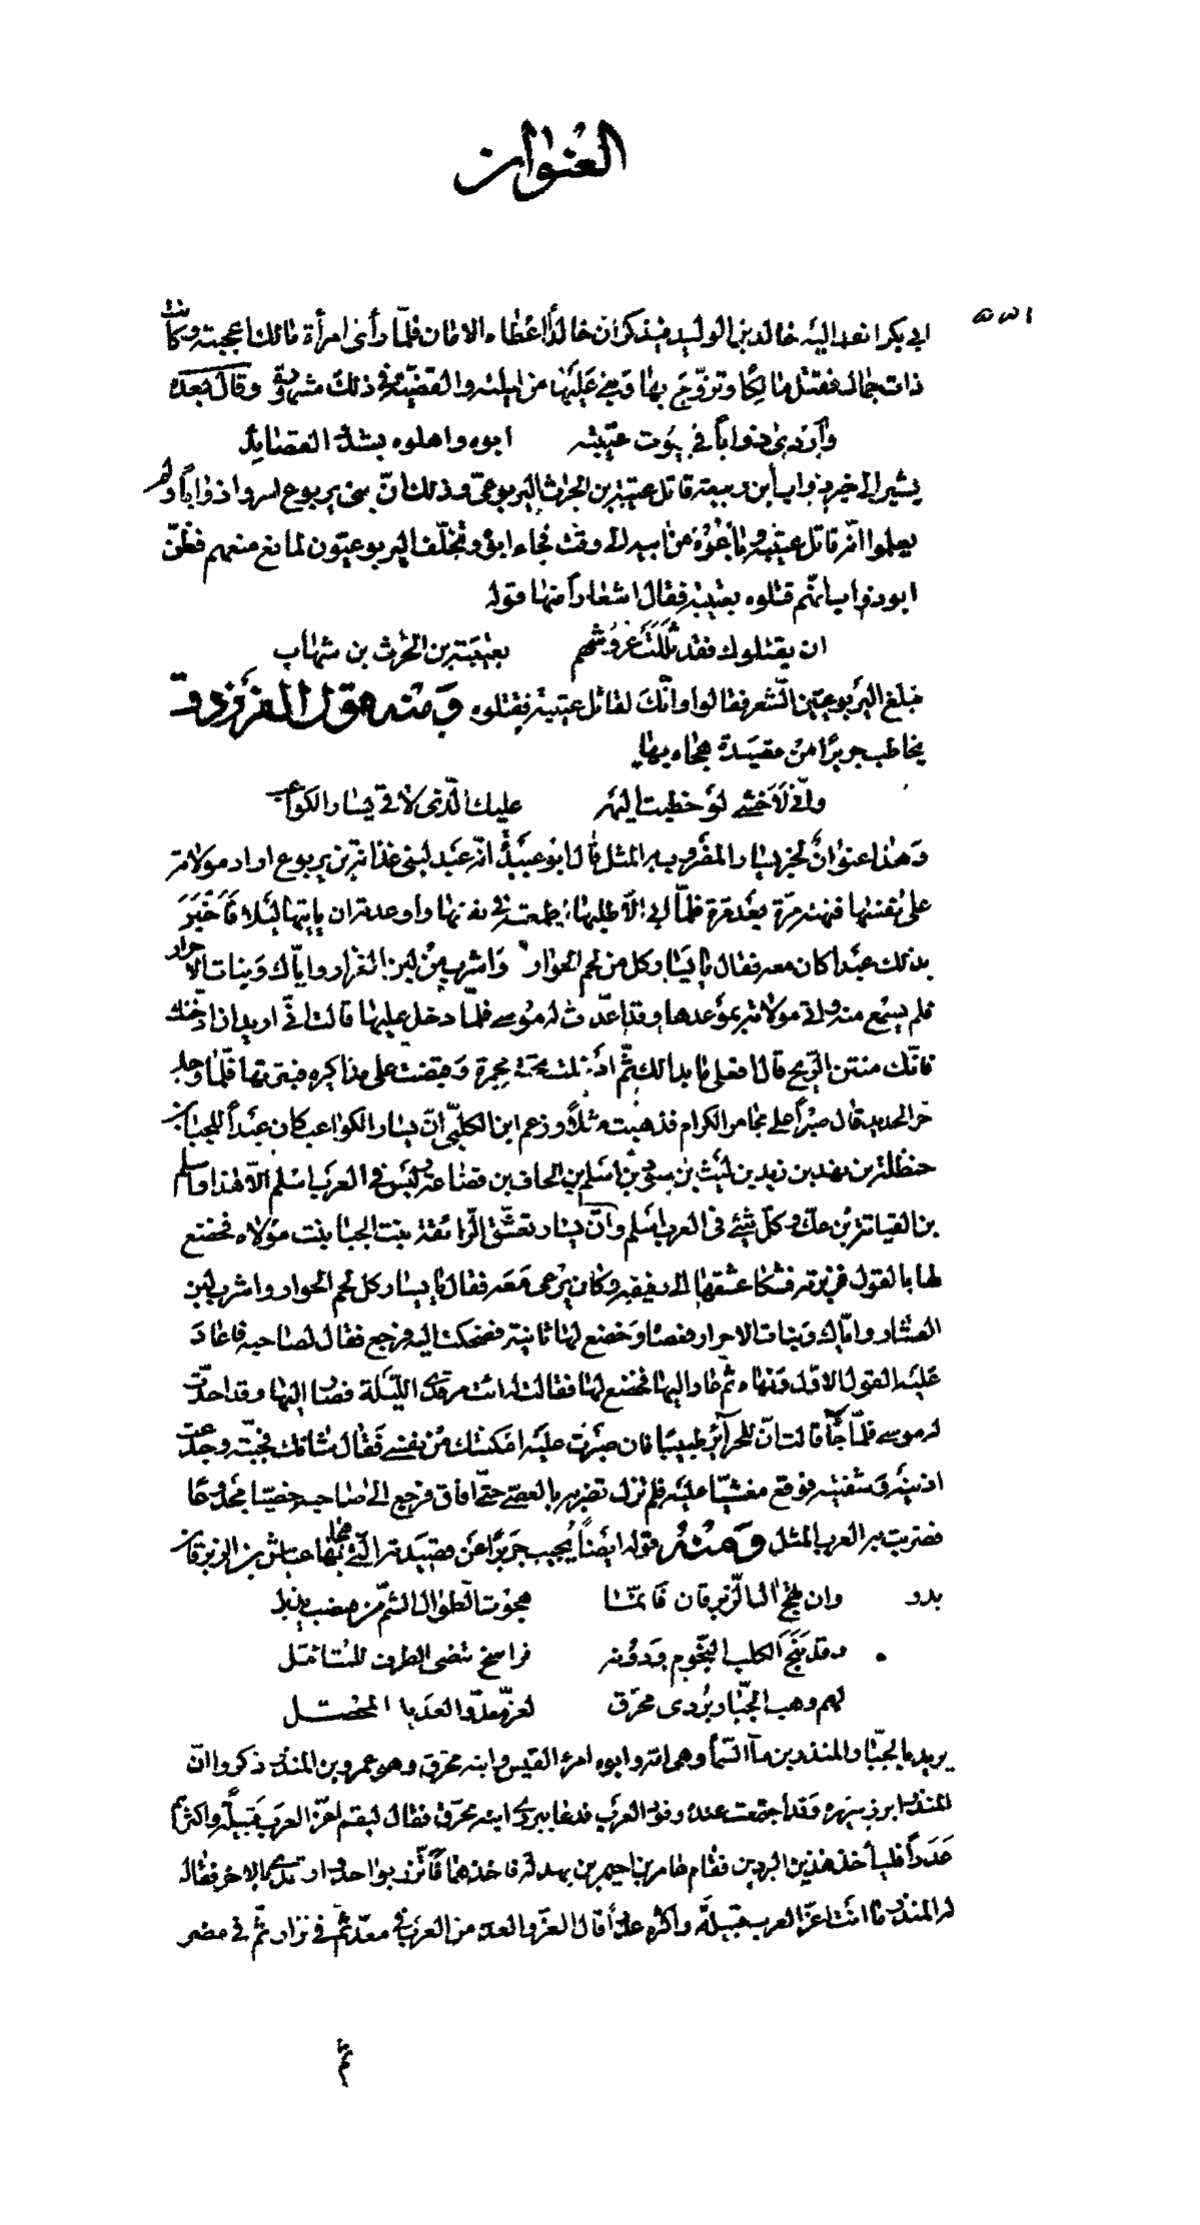 العنوان
ابي بكر انفد اليه خالد بن الوليد فيذكر ان خالدًا اعطاه الامان فلمّا رأى امرأة مالك اعجبته وكانت
ذات جمال فقتل مالكًا وتزوّج بها وبنى عليها من ليلته والقضيّة في ذلك مشهورة وقال بعده
وأردى ذواباً في بيوت عتيبة ابوه واهلوه بشدّ القصائد
يشير الى خبر ذواب ابن ربيعة قاتل عتيبة بن الحرث اليربوعى وذلك انّ بنى يربوع اسروا ذواباً ولم
يعلموا انّه قاتل عتيبة من ابيه الى وقت فجاء ابوه وتخلّف اليربوعيّون لمانع منعهم فظنّ
ابو ذواب انّهم قتلوه بعتيبة فقال اشعاراً منها قوله
ان يقتلوك فقد ثللت عروشهم بعتيبة بن الحرث بن شهاب
فبلغ اليربوعيّين الشعر فقالوا وانّك لقاتل عتيبة فقتلوه ومنه قول الفرزدق
يخاطب جريرًا من قصيدة هجاه بها
وانّى لاخشى لو خطبت اليهم عليك الّذى لاقى يسار الكواعب
وهذا عنوان لخبر يسار المضروب به المثل قال ابو عبيدة انّه عبد لبنى غدانة بن يربوع اراد مولاته
على نفسها فنهته مرّة بعد مرة فلمّا ابى الّا طلبها اطمعته فى نفسها واوعدته ان ياتيها ليلا فاخبر
بذلك عبدا كان معه فقال يا يسار كل من لحم الحوار واشرب من لبن الغزار واياك وبنات الاحرار
فلم يسمع منه واتى مولاته بموعدها وقد اعدّت له موسى فلمّا دخل عليها قالت انّى اريد ان ادخنك
فانّك منتن الرّيح قال افعلى ما بدا لك ثمّ ادخلت تحته مجمرة وقبضت على مذاكيره فبترتها فلمّا وجد
حرّ الحديد قال صبراً على مجامر الكرام فذهبت مثلاً وزعم ابن الكلبىّ انّ يسار الكواعب كان عبداً للجبار بن
حنظلة بن نهد بن زيد بن ليث بن سود بن اسلم بن الحاف بن قضاعة وليس فى العرب اسلم الّا هذا واسلم
بن القياتة بن عك وكلّ شئ فى العرب اسلم وانّ يسار تعشّق الرّائقة بنت الجبار بنت مولاه فخضع
لها بالقول فزبرته فشكا عشقها الى رفيقه وكان يرعى معه فقال يا يسار كل لحم الحوار واشرب لبن
العشار وايّاك وبنات الاحرار فعصاه وخضع لها ثانية فضحكت اليه فرجع فقال لصاحبه فاعاد
عليه القول الاوّل ونهاه ثم عاد اليها فخضع لها فقالت له ائت مرقدى الليلة فصار اليها وقد احدّت
له موسى فلمّا جاء قالت انّ للحرائر طيبا فان صبرت عليه امكنتك من نفسى فقال شانك فجبّته وجدعت
اذنيه وشفتيه فوقع مغشيّا عليه فلم تزل تضربه بالعصى حتّى افاق فرجع الى صاحبه خصيّا مجدعًا
فضربت به العرب المثل ومنه قوله ايضاً يجيب جريرًا عن قصيدته الّتى هجا بها عياش بن الزبرقان بن
بدر وان تهج ال الزّبرقان فانّما هجوت الطوال الشّم من هضب يذبل
وقد ينبح الكلب النّجوم ودونه فراسخ تنضى الطرف للمتامّل
لهم وهب الجبّار بردى محرّق لعزّ معدّ والعديد المحصّل
يريد بالجبّار المنذر بن مآء السّمآء وهى امّه وابوه امرء القيس وابنه محرّق وهو عمرو بن المنذر ذكروا انّ
المنذر ابرز سريره وقد اجتمعت عنده وفود العرب فدعا ببردى ابنه محرّق فقال ليقم اعزّ العرب قبيلة واكثرها
عدداً فليأخذ هذين البردين فقام عامر بن احيمر بن بهدلة فاخذهما فاتّزر بواحد وارتدى بالاخر فقال
له المنذر ما انت اعزّ العرب قبيلة واكثره عدداً قال العزّ والعدد من العرب فى معدّ ثمّ فى نزار ثمّ فى مضر
ثم